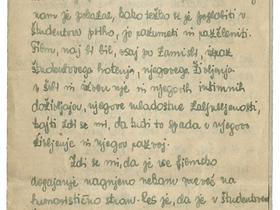 nam je pokazal, kako težko se je poglobiti v
študentovo psiho, jo razumeti in razčleniti.
Film, naj bi bil, vsaj po zamisli, izraz
študentovega hotenja, njegovega življenja
v šoli in izven nje in njegovih intimnih
doživljajev, njegove mladostne zaljubljenosti,
kajti zdi se mi, da tudi to spada v njegovo
življenje in njegov razvoj.
Zdi se mi, da je vse filmsko
dogajanje nagnjeno nekam preveč na
humoristično stran. Res je, da je v študentovem